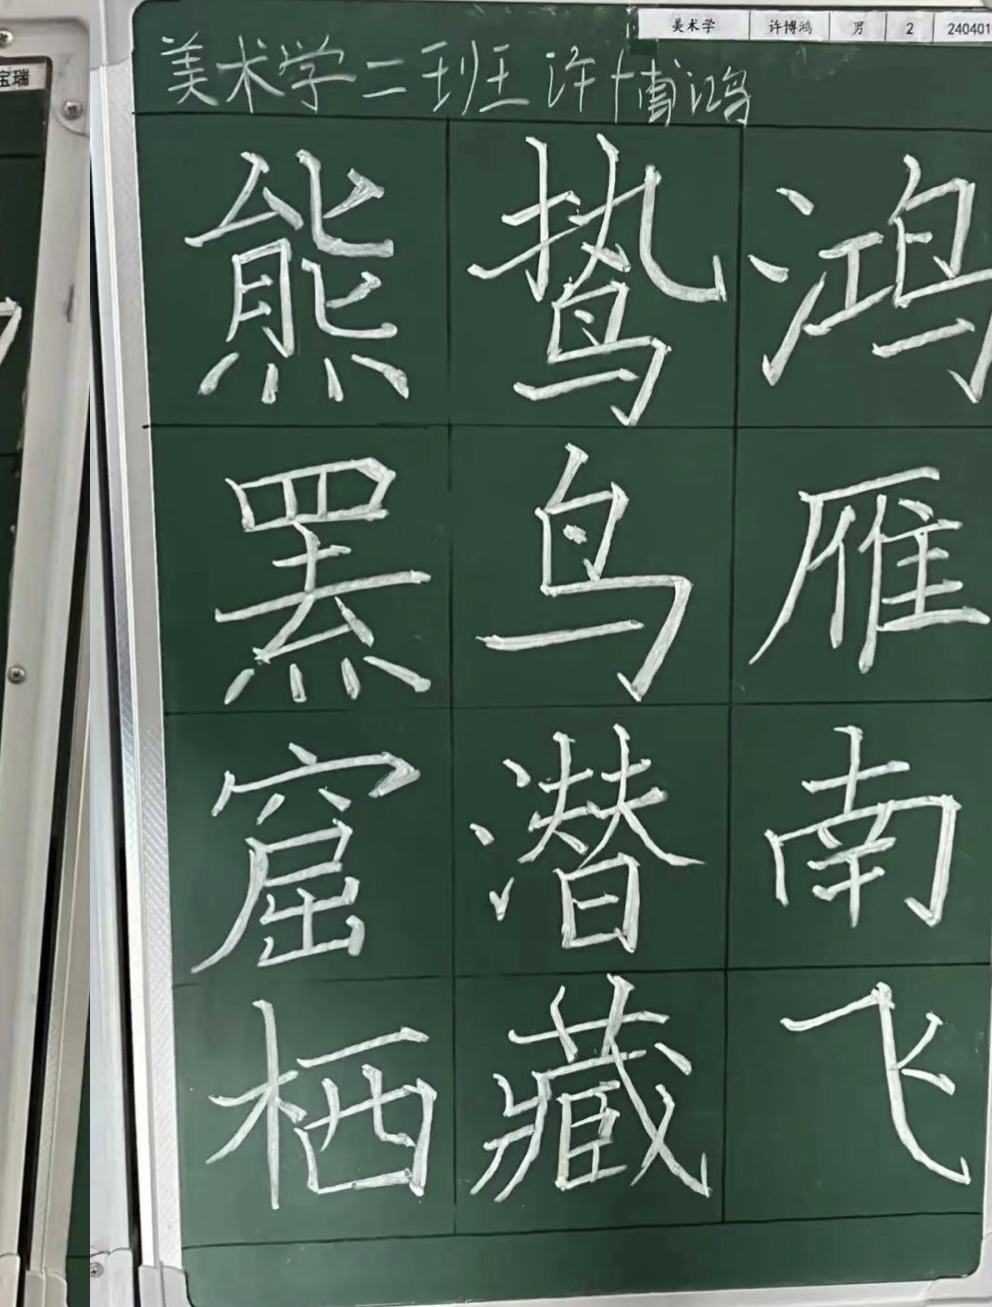 宝瑞
美术学 许博鸿 男 2 240401
美术学二班 许博鸿
熊 鸷 鸿
罴 鸟 雁
窟 潜 南
栖 藏 飞